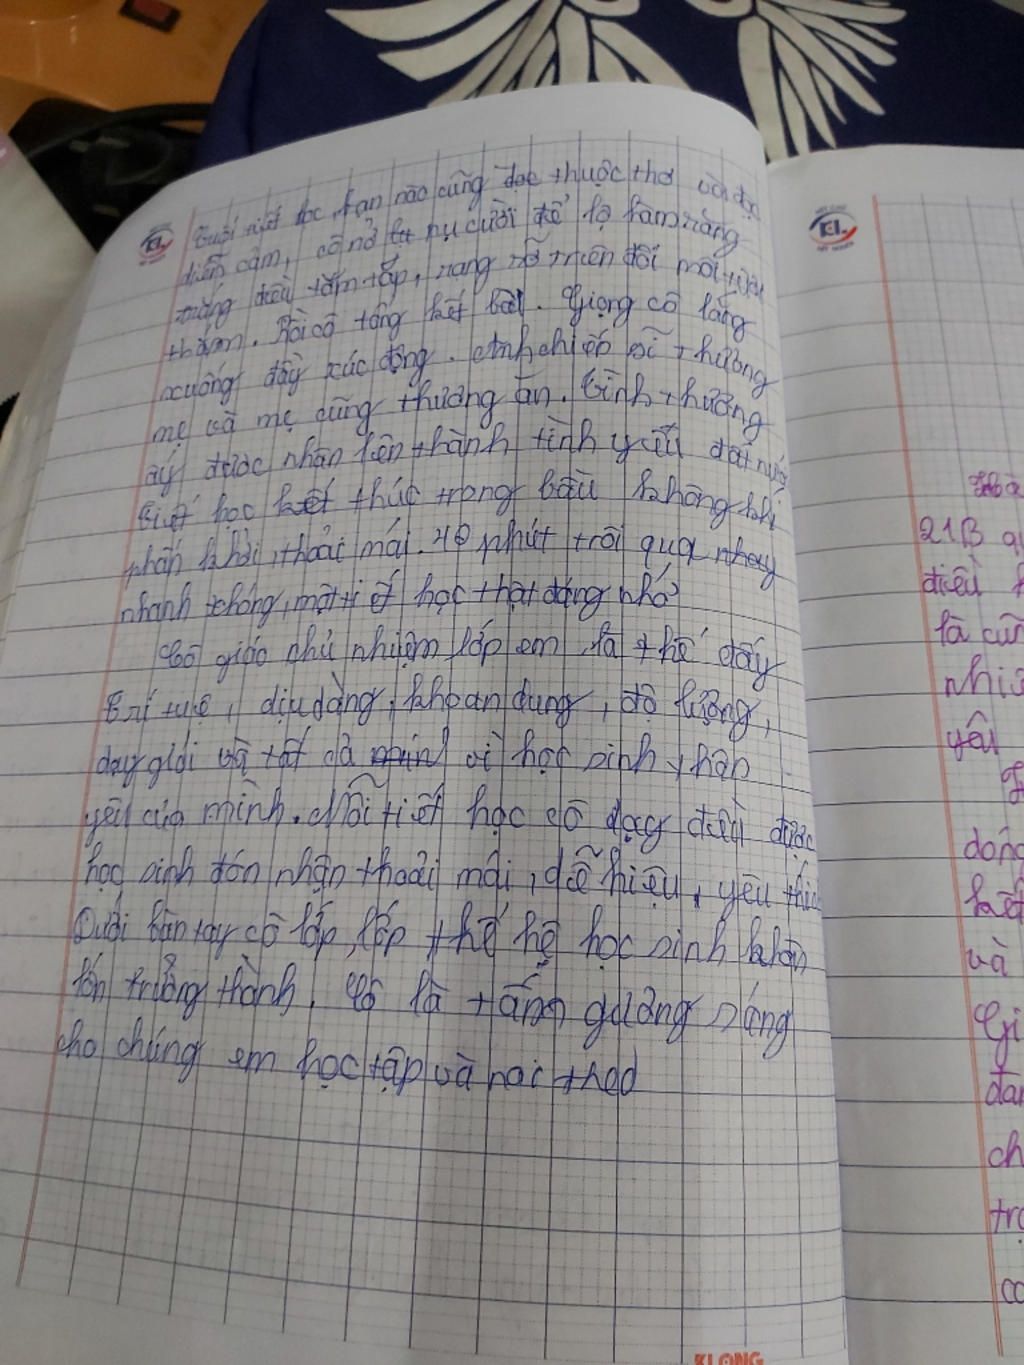 Cuối tiết học, bạn nào cũng đọc thuộc thơ và đọc
diễn cảm, cô nở nụ cười để lộ hàm răng
trắng đều tăm tắp, rạng rỡ trên đôi môi tươi
thắm. Rồi cô tổng kết bài. Giọng cô lắng
xuống đầy xúc động. Anh chiến sĩ thương
mẹ và mẹ cũng thương anh. Tình thương
ấy được nhân lên thành tình yêu đất nước
Tiết học kết thúc trong bầu không khí
phấn khởi, thoải mái. 40 phút trôi qua nhay
nhanh chóng, một tiết học thật đáng nhớ
Cô giáo chủ nhiệm lớp em là thế đấy
Trí tuệ, dịu dàng, khoan dung, độ lượng,
dạy giỏi và tất cả vì học sinh thân
yêu của mình. Mỗi tiết học cô dạy đều được
học sinh đón nhận thoải mái, dễ hiểu, yêu thích
Dưới bàn tay cô lớp, lớp thế hệ học sinh khôn
lớn trưởng thành. Cô là tấm gương sáng
cho chúng em học tập và noi theo
21B
điều
là cũ
yêu
và
ch
KLONG